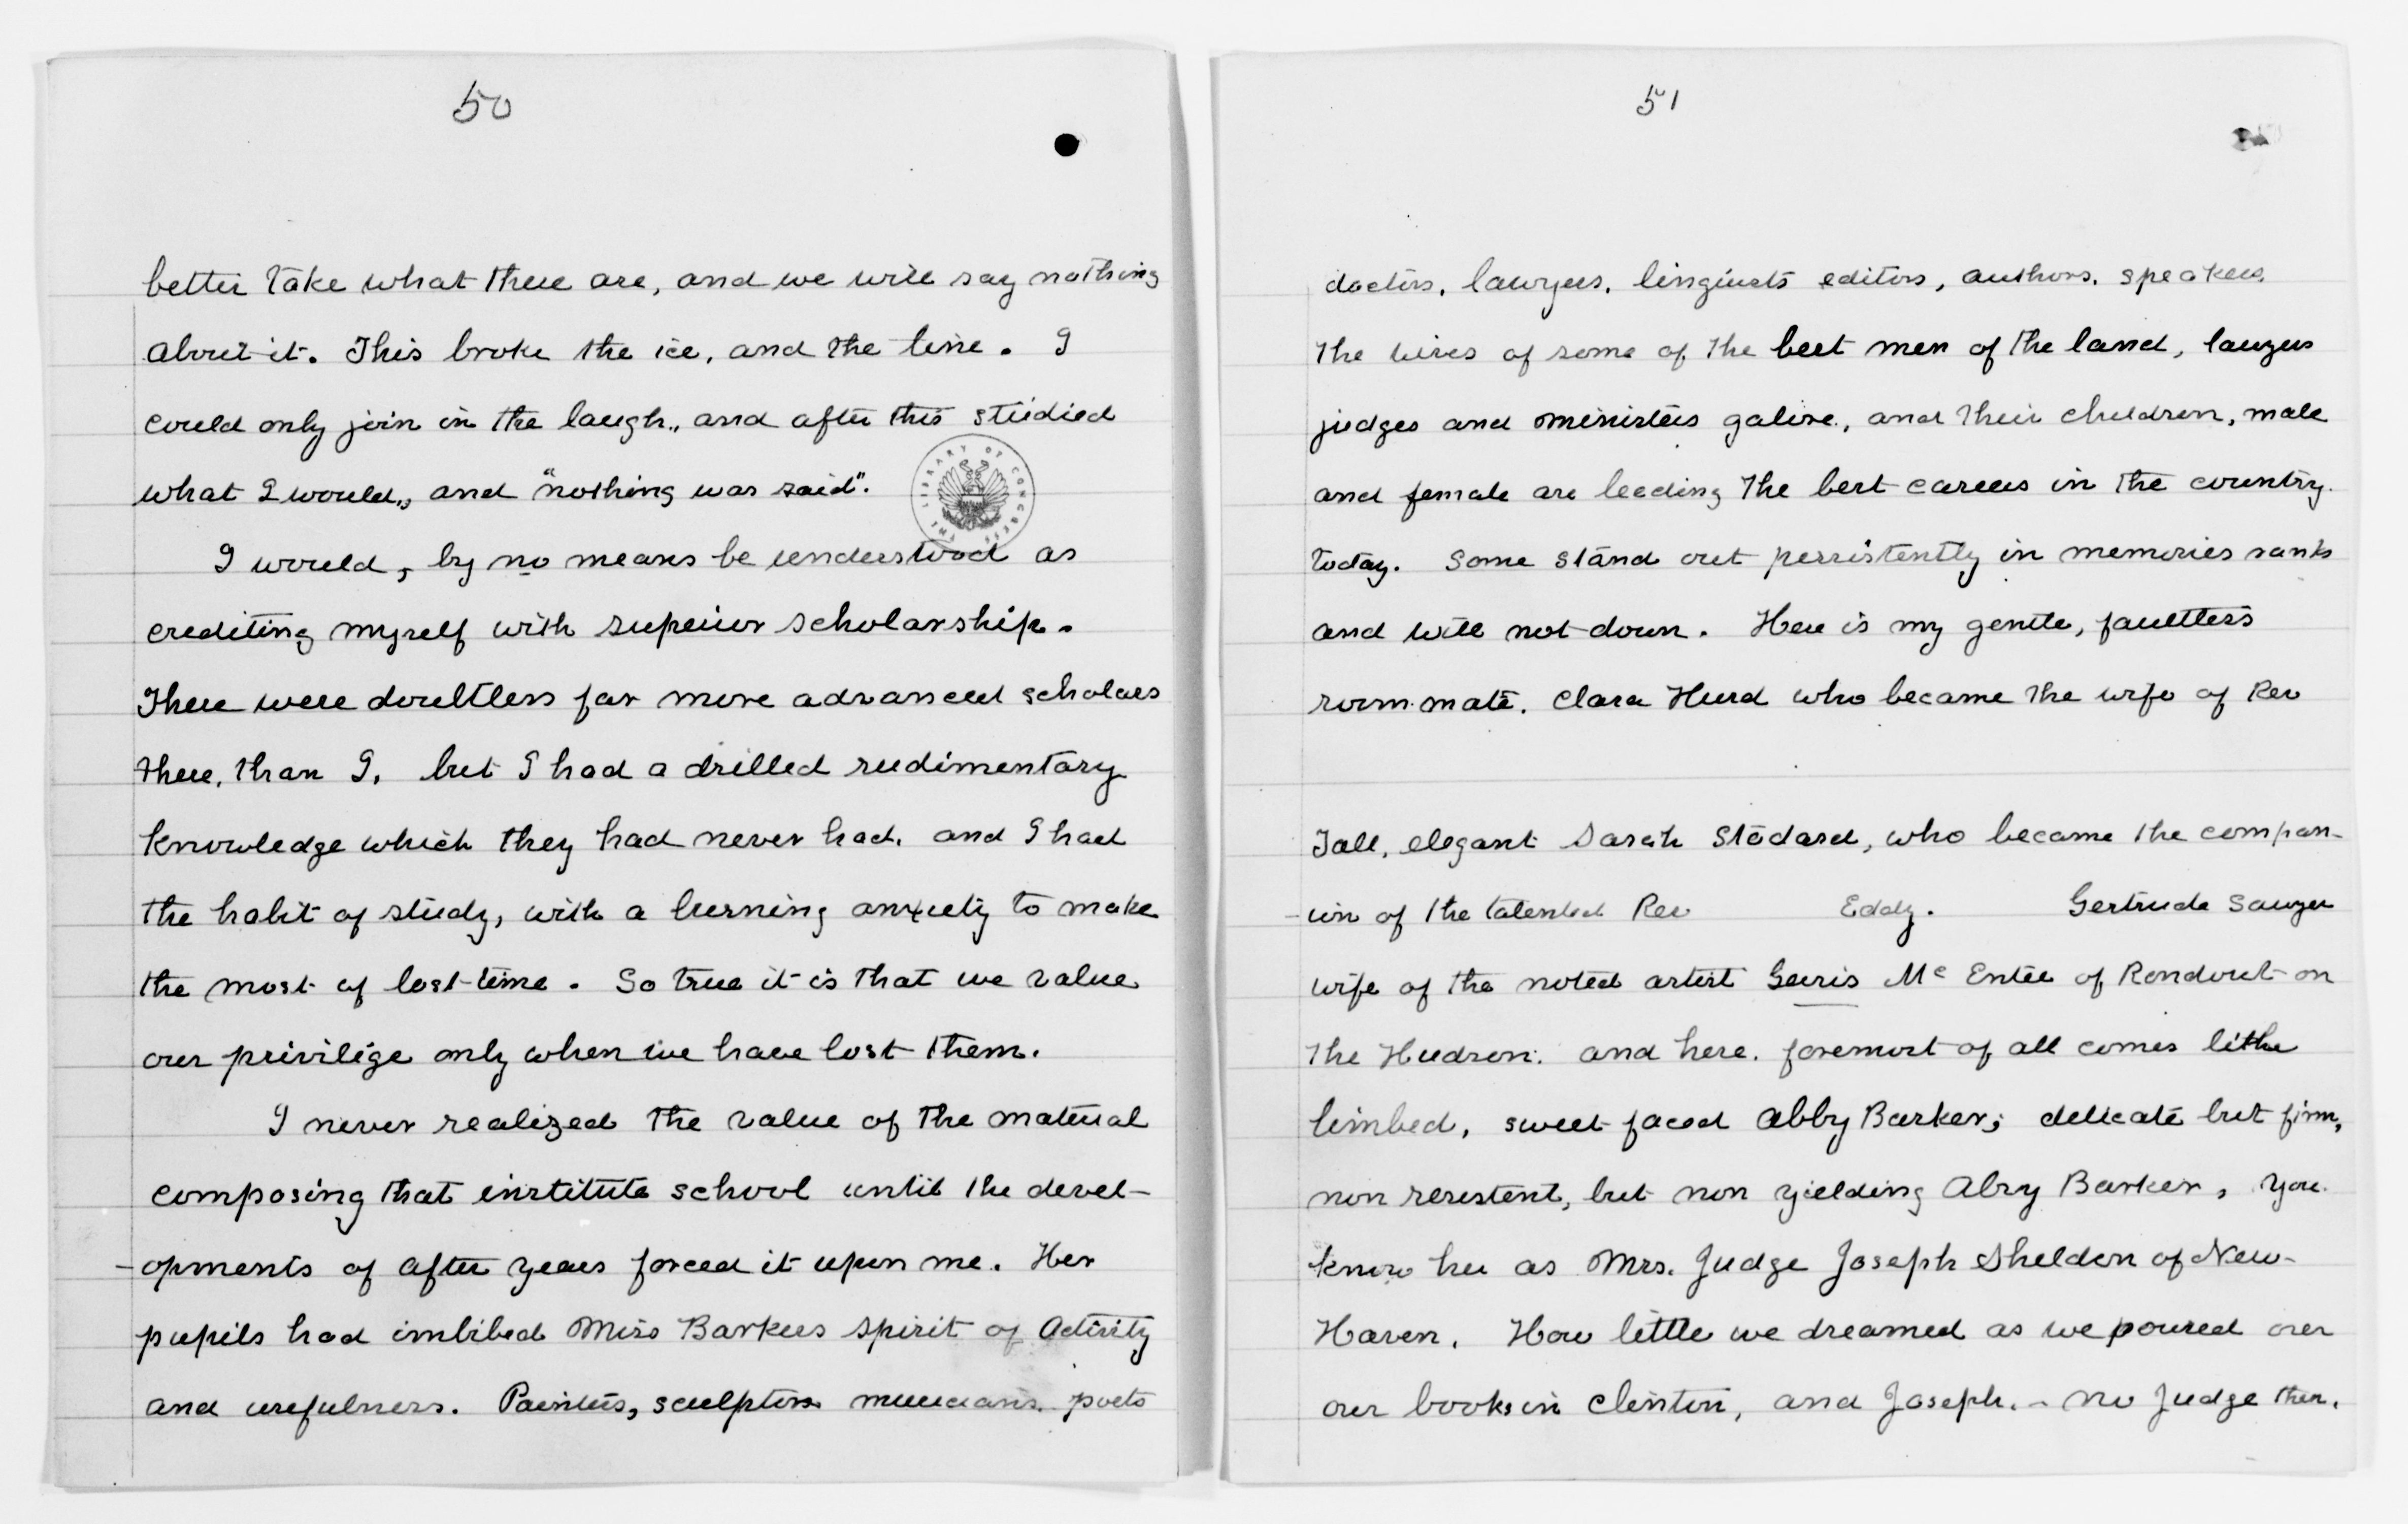 50
better take what there are, and we will say nothing
about it. This broke the ice, and the line. I
could only join in the laugh, and after this studied
what I would, and "nothing was said".
THE LIBRARY OF CONGRESS
I would, by no means be understood as
crediting myself with superior scholarship.
There were doubtless far more advanced scholars
there, than I, but I had a drilled rudimentary
knowledge which they had never had, and I had
the habit of study, with a burning anxiety to make
the most of lost time. So true it is that we value
our privilige only when we have lost them.
I never realized the value of the material
composing that institute school until the devel-
-opments of after years forced it upon me. Her
pupils had imbibed Miss Barkers spirit of activity
and usefulness. Painters, sculptors musicians. poets
51
doctors, lawyers, linguists editors, authors, speakers,
the wives of some of the best men of the land, lawyers
judges and ministers galore, and their children, male
and female are leading the best careers in the country
today. Some stand out persistently in memories ranks
and will not down. Here is my gentle, faultless
room-mate. Clara Hurd who became the wife of Rev
Tall, elegant Sarah Stodard, who became the compan-
-ion of the talented Rev Eddy. Gertrude Sawyer
wife of the noted artist Jarvis Mc Entee of Rondout on
the Hudson. and here, foremost of all comes lithe
limbed, sweet faced Abby Barker; delicate but firm,
non resestent, but non yielding Abby Barker, you
know her as Mrs. Judge Joseph Sheldon of New-
Haven. How little we dreamed as we poured over
our books in Clinton, and Joseph. - no Judge then.